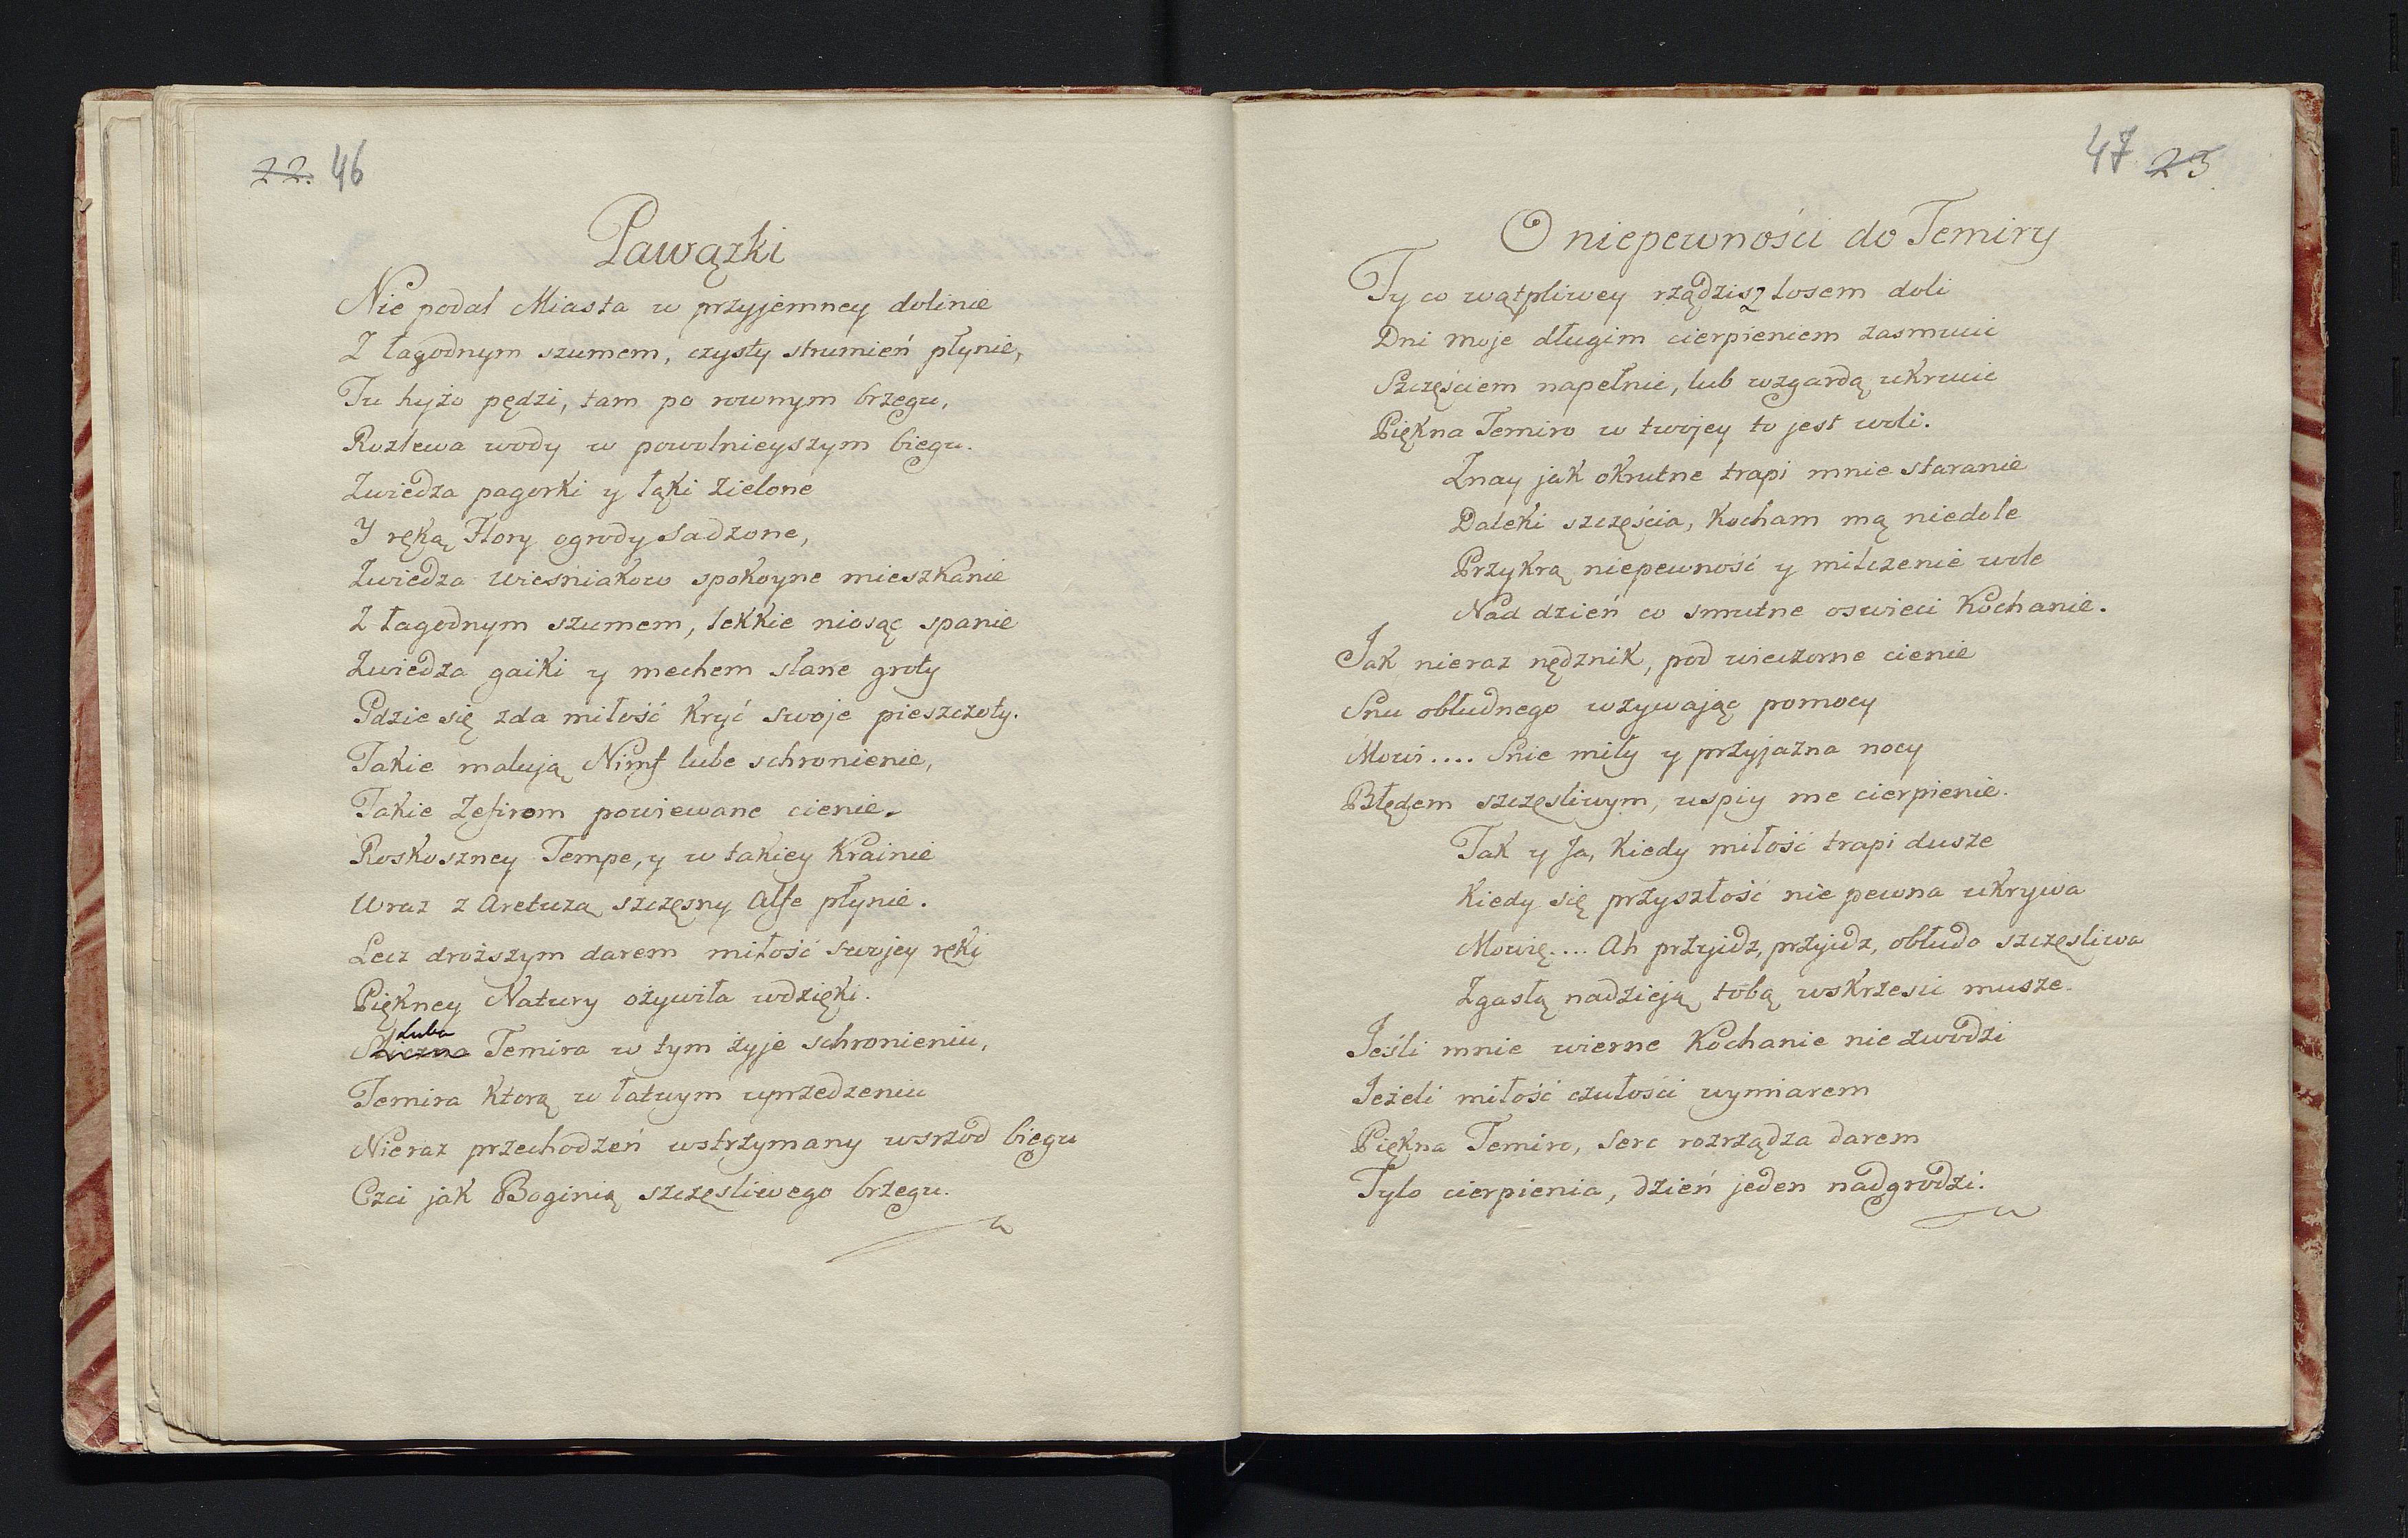 22. 46
Pawązki
Nie podal Miasta w przyjemney dolinie
Z łagodnym szumem, czysty strumień płynie,
Tu hyżo pędzi, tam po rownym brzegu,
Rozlewa wody w powolnieyszym biegu.
Zwiedza pagorki y łąki zielone
Y ręką Flory ogrody sadzone,
Zwiedza wieśniakow spokoyne mieszkanie
Z łagodnym szumem, lekkie niosąc spanie
Zwiedza gaiki y mechem słane groty
Gdzie się zda miłość kryć swoje pieszczoty.
Takie malują Nimf lube schronienie,
Takie Zefirom powiewane cienie.
Roskoszney Tempe, y w takiey krainie
Wraz z Aretuzą szczęsny Alfe płynie.
Lecz droższym darem miłość swojey ręki
Piękney Natury ożywiła wdzięki.
Luba
Śliczna Temira w tym żyje schronieniu,
Temira ktorą w łatwym uprzedzeniu
Nieraz przechodzeń wstrzymany wsrzod biegu
Czci jak Boginią szczęsliwego brzegu.
47 23.
O niepewności do Temiry
Ty co wątpliwey rządzisz losem doli
Dni moje długim cierpieniem zasmucic
Szczęściem napełnic, lub wzgardą ukrucic
Piękna Temiro w twojey to jest woli.
Znay jak okrutne trapi mnie staranie
Daleki szczęścia, kocham mą niedole
Przykrą niepewność y milczenie wole
Nad dzień co smutne oswieci kochanie.
Jak nieraz nędznik, pod wieczorne cienie
Snu obłudnego wzywając pomocy
Mowi.... Snie miły y przyjazna nocy
Błędem szczęsliwym, uspiy me cierpienie.
Tak y Ja, kiedy miłość trapi dusze
Kiedy się przyszłość nie pewna ukrywa
Mowię.... Ah przyidz, przyidz, obłudo szczęsliwa
Zgasłą nadzieją tobą wskrzesic musze.
Jeśli mnie wierne kochanie nie zwodzi
Jeżeli miłość czułości wymiarem
Piękna Temiro, serc rozrządza darem
Tylo cierpienia, dzień jeden nadgrodzi.